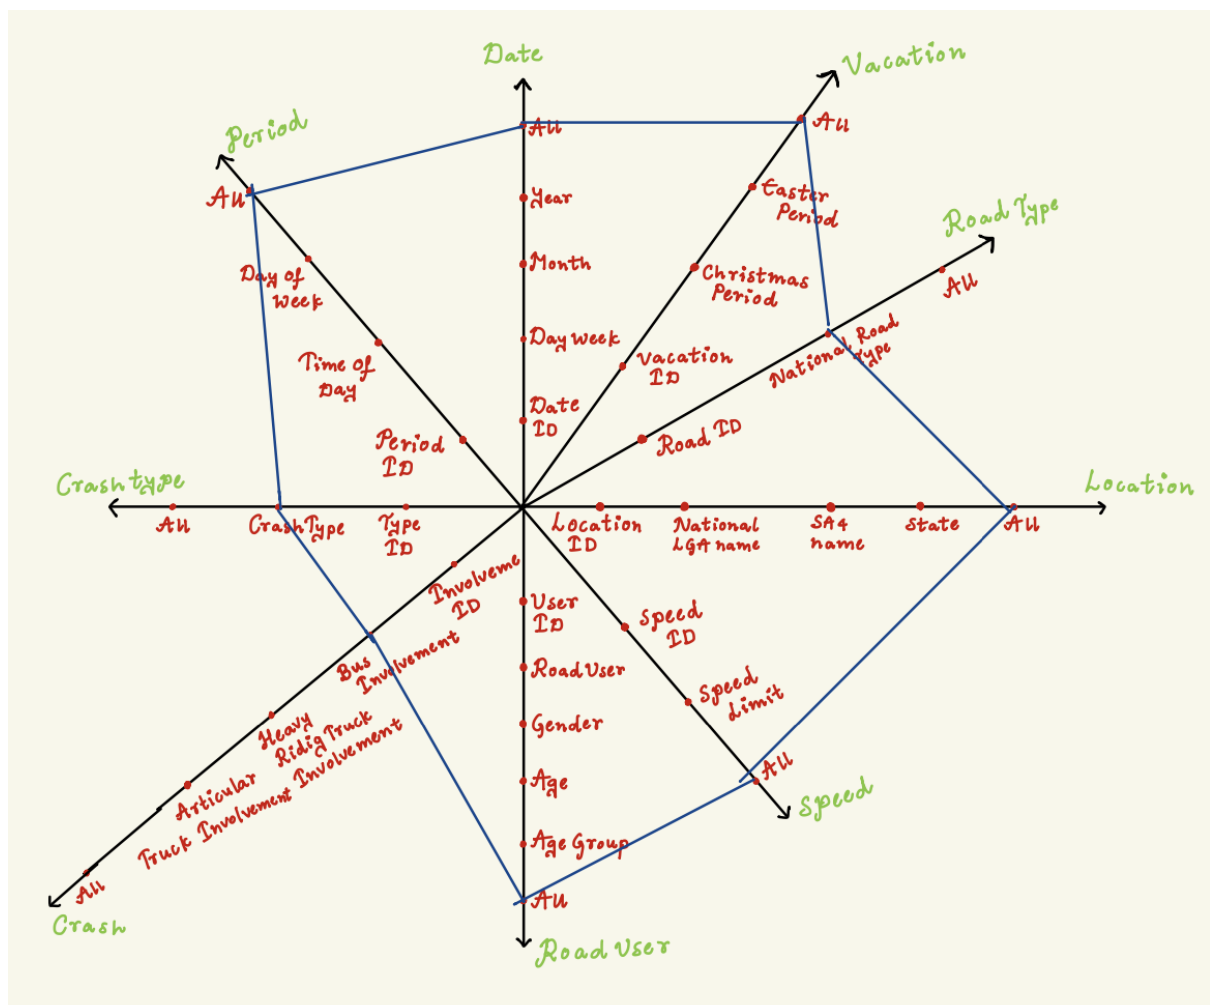 Date
All
Year
Month
Day week
Date
ID
Vacation
All
Easter
Period
Christmas
Period
Vacation
ID
Road Type
All
National Road
Type
Road ID
Location
Location
ID
National
LGA name
SA4
name
State
All
Speed
ID
Speed
Limit
All
Speed
User
ID
Road User
Gender
Age
Age Group
All
Road User
Involveme
ID
Bus
Involvement
Heavy
Ridig Truck
Involvement
Articular
Truck Involvement
All
Crash
Crash type
All
Crash Type
Type
ID
Period
All
Day of
Week
Time of
Day
Period
ID